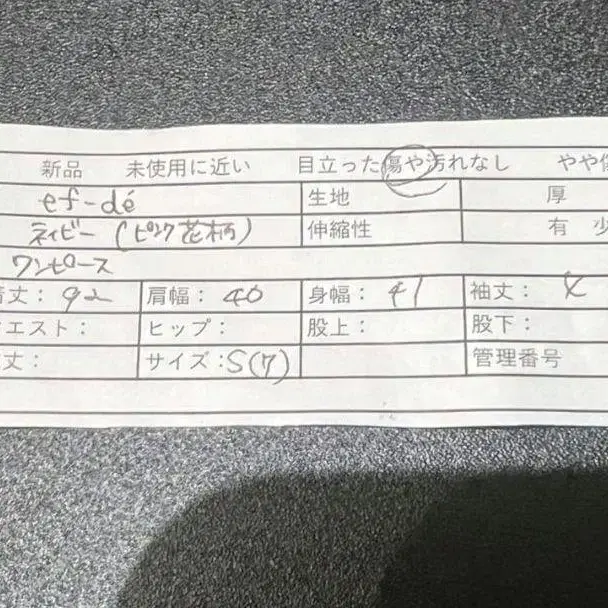 新品 未使用に近い 目立った傷や汚れなし やや傷
ef-dé 生地 厚
ネイビー (ピンク花柄) 伸縮性 有 少
ワンピース
着丈: 92 肩幅: 40 身幅: 41 袖丈: 4
ウエスト: ヒップ: 股上: 股下:
丈: サイズ:S(7) 管理番号